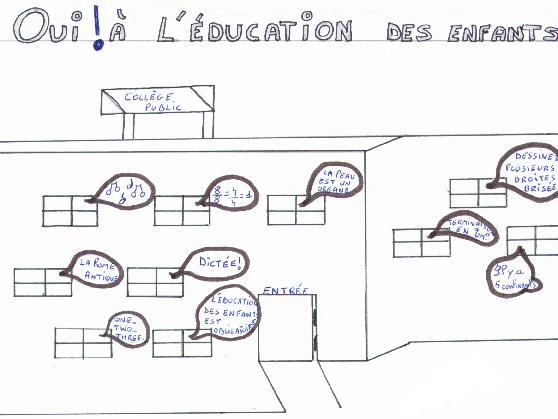 Oui ! À L'ÉDUCATION DES ENFANTS
COLLÈGE
PUBLIC
8/8 = 4/4 = 1
LA PEAU
EST UN
ORGANE
DESSINEZ
PLUSIEURS
DROITES
BRISÉE
EN UM
LA ROME
ANTIQUE
DICTÉE!
Il y a
5 continents
L'ÉDUCATION
DES ENFANTS
EST
OBLIGATOIRE
ENTRÉE
ONE-
TWO-
THREE.